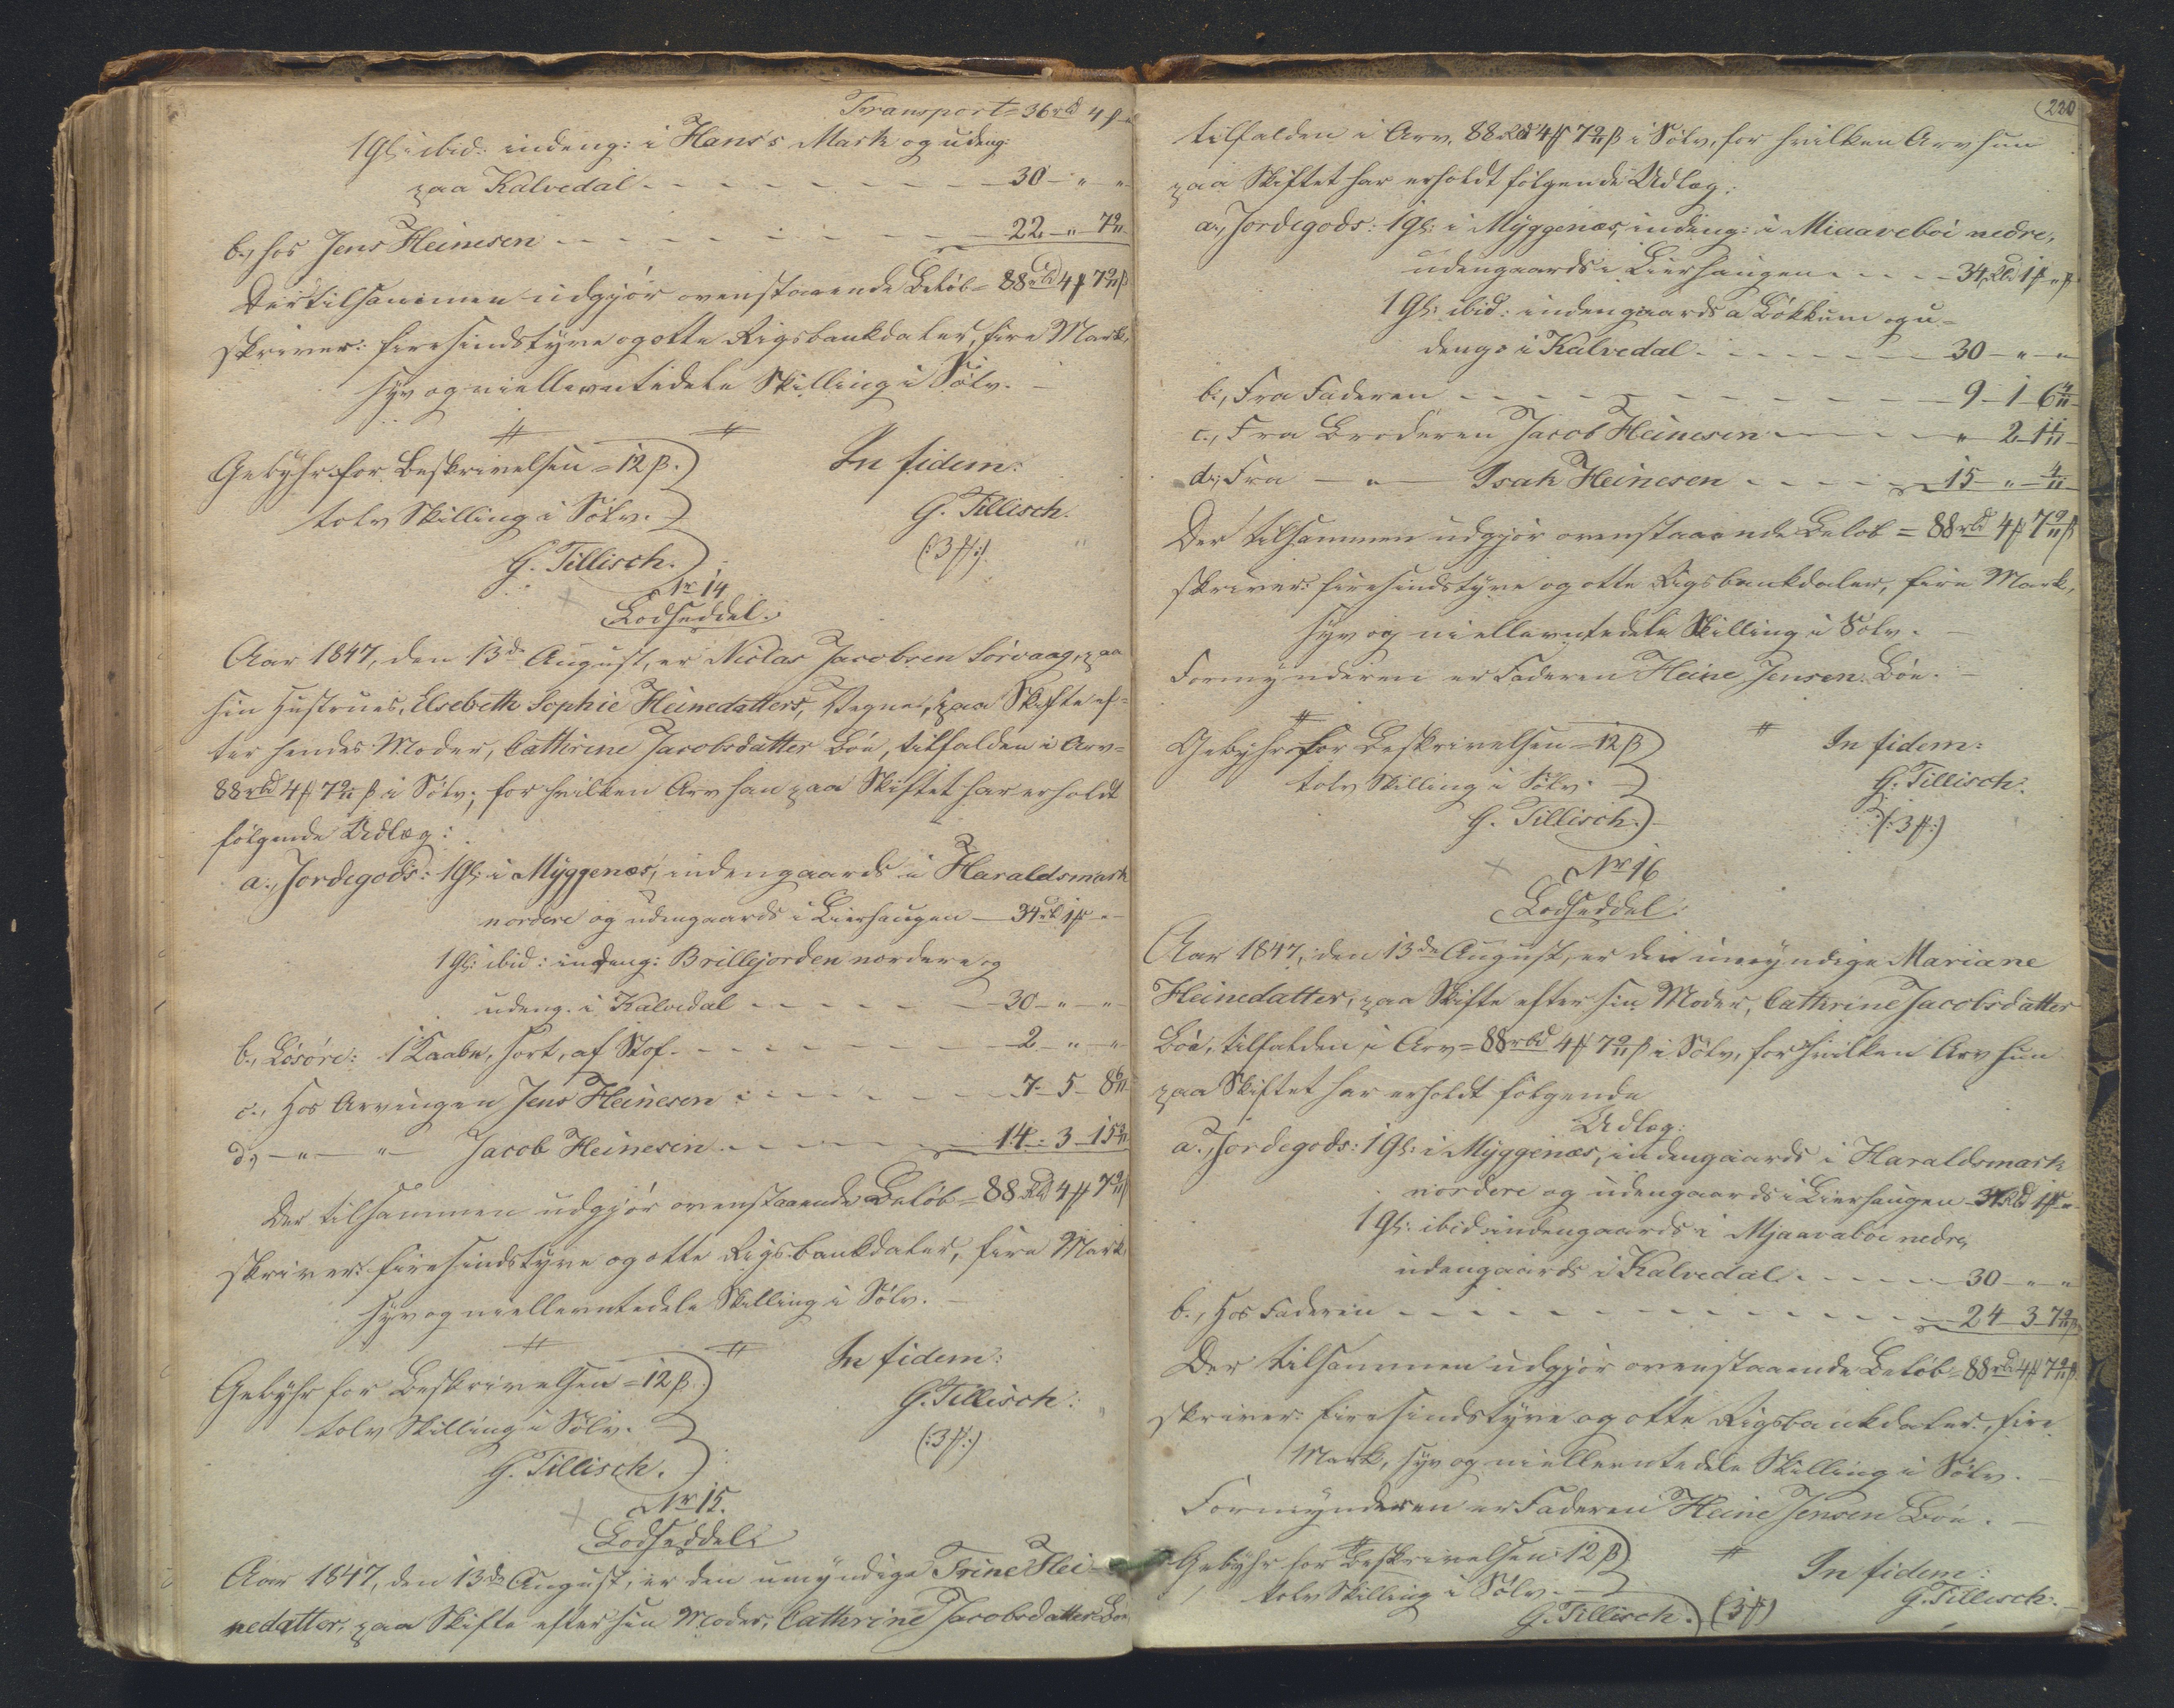 Transport = 36 rbd 4 ß "
1 Gl: ibid: indeng: i Hans's Mark og udeng:
paa Kalvedal - - - - - - - - 30 - " - "
b., hos Jens Heinesen - - - - - - - 22 - " - 7 9/11
Der tilsammen udgjör ovenstaaende Belöb = 88 rbd 4 ß 7 9/11 ß
skriver: firesindstyve og otte Rigsbankdaler, fire Mark,
syv og niellevntedele Skilling i Sölv. -
Gebyhr for Beskrivelsen = 12 ß.
In fidem:
tolv Skilling i Sölv.
G. Tillisch.
G. Tillisch.
(: 3 ß :)
No 14
Lodseddel.
Aar 1847, den 13de August, er Niclas Jacobsen Sörvaag, paa
sin Hustrues, Elsebeth Sophie Heinedatters, Vegne, paa Skifte ef-
ter hendes Moder, Cathrine Jacobsdatter Böe, tilfalden i Arv =
88 rbd 4 ß 7 9/11 ß i Sölv; for hvilken Arv han paa Skiftet har erholdt
fölgende Udlæg:
a., Jordegods: 1 Gl: i Myggenæs, indengaards i Haraldsmark
nordere og udengaards i Lierhaugen - 34 rbd 1 ß "
1 Gl: ibid: indeng: Brillejorden nordere og
udeng. i Kalvedal - - - - - 30 - " - "
b., Lösöre: 1 Kaabe, sort, af Stof. - - - - - - 2 - " - "
c., Hos Arvingen Jens Heinesen - - - - - 7 - 5 - 8 6/11
d., - " - " Jacob Heinesen - - - - - 14 - 3 - 15 3/11
Der tilsammen udgjör ovenstaaende Belöb = 88 Rbd 4 ß 7 9/11 ß
skriver: firesindstyve og otte Rigsbankdaler, fire Mark
syv og niellevntedele Skilling i Sölv. -
Gebyhr for Beskrivelsen = 12 ß.
In fidem:
tolv Skilling i Sölv.
G. Tillisch.
G. Tillisch.
(: 3 ß :)
No 15.
Lodseddel.
Aar 1847, den 13de August, er den umyndige Trine Hei-
nedatter, paa Skifte efter sin Moder, Cathrine Jacobsdatter Böe
220
tilfalden i Arv, 88 Rbd 4 ß 7 9/11 ß i Sölv, for hvilken Arv hun
paa Skiftet har erholdt fölgende Udlæg:
a., Jordegods: 1 Gl: i Myggenæs, indeng: i Miaaveböi nedre,
udengaards i Lierhaugen - - - - 34 Rbd 1 ß " ß
1 Gl: ibid: indengaards a Bökkum og u-
deng: i Kalvedal - - - - - - 30 - " - "
b., Fra Faderen - - - - - - - - - 9 - 1 - 6 4/11
c., Fra Broderen Jacob Heinesen - - - " - 2 - 1 1/11
d., Fra - " - Isak Heinesen - - - - 15 - " - 4/11
Der tilsammen udgjör ovenstaaende Belöb = 88 rbd 4 ß 7 9/11 ß
skriver: firesindstyve og otte Rigsbankdaler, fire Mark,
syv og niellevntedele Skilling i Sölv. -
Formynderen er Faderen Heine Jensen Böe. -
Gebyhr for Beskrivelsen = 12 ß
In fidem:
tolv Skilling i Sölv.
G. Tillisch.
G. Tillisch.
(: 3 ß :)
No 16
Lodseddel.
Aar 1847, den 13de August, er den umyndige Mariane
Heinedatter, paa Skifte efter sin Moder, Cathrine Jacobsdatter
Böe, tilfalden i Arv = 88 rbd 4 ß 7 9/11 ß i Sölv, for hvilken Arv hun
paa Skiftet har erholdt fölgende
Udlæg:
a., Jordegods: 1 Gl: i Myggenæs, indengaards i Haraldsmark
nordere og udengaards i Lierhaugen 34 Rbd 1 ß "
1 Gl: ibid indengaards i Mjaavaböi nedre,
udengaards i Kalvedal. - - - - 30 - " - "
b., Hos Faderen - - - - - - - - - - 24 - 3 - 7 9/11 ß
Der tilsammen udgjör ovenstaaende Belöb = 88 rbd 4 ß 7 9/11 ß
skriver: firesindstyve og otte Rigsbankdaler, fire
Mark, syv og niellevntedele Skilling i Sölv. -
Formynderen er Faderen Heine Jensen Böe. -
Gebyhr for Beskrivelsen 12 ß
In fidem:
tolv Skilling i Sölv.
G. Tillisch.
G. Tillisch.
(3 ß)